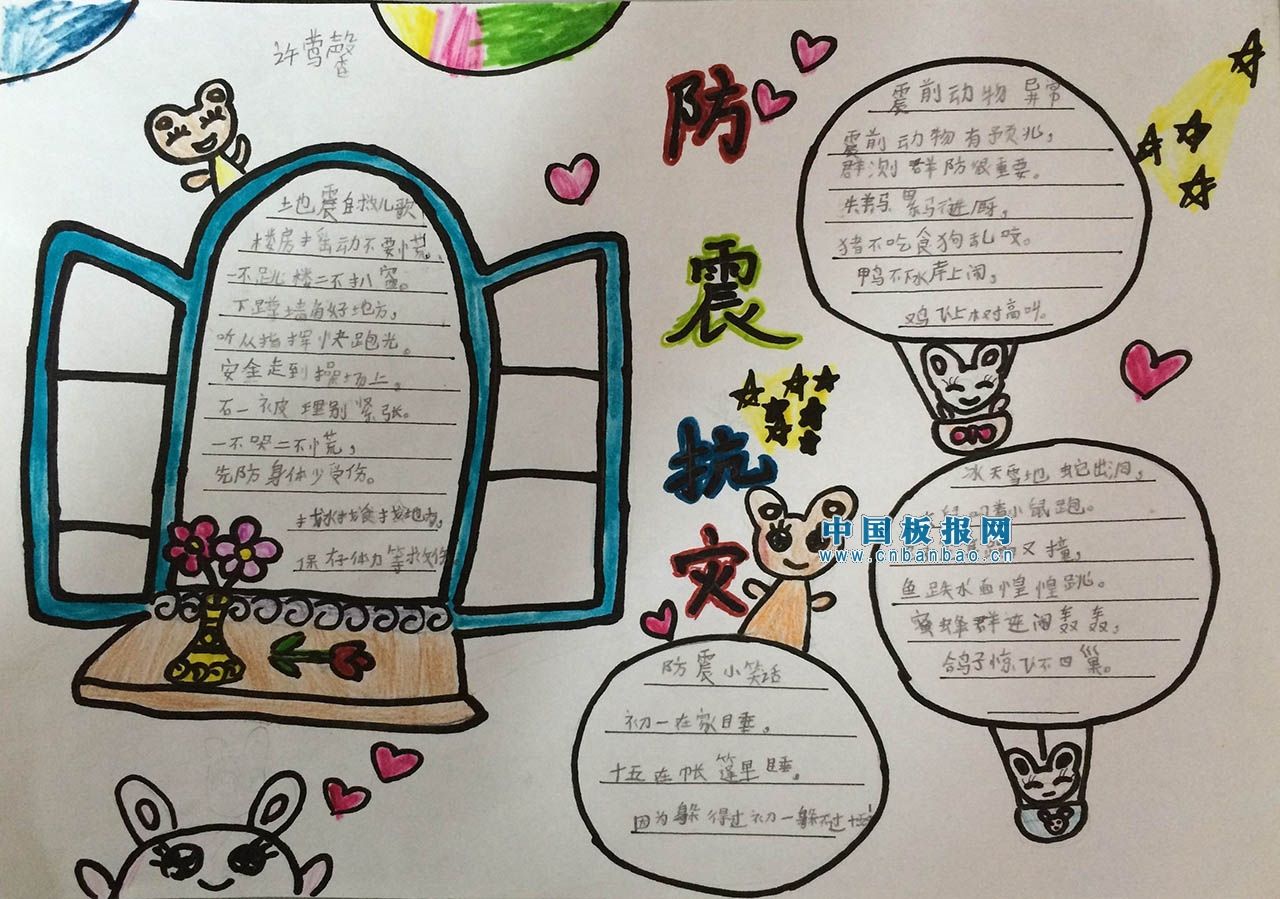 许莺馨
防震抗灾
地震自救儿歌
楼房摇动不要慌、
一不跳楼二不扒窗。
下蹲墙角好地方，
听从指挥快跑光。
安全走到操场上。
石一被埋别紧张。
一不哭二不慌，
先防身体少受伤。
找水找食找地方，
保存体力等救
震前动物异常
震前动物有预兆，
群测群防很重要。
猪不吃食狗乱咬。
鸭不下水岸上闹。
鸡飞上树高叫。
冰天雪地蛇出洞，
小鼠跑。
又撞，
鱼跌水面惶惶跳。
蜜蜂群迁闹轰轰，
鸽子惊飞不回巢。
防震小笑话
初一在家睡，
十五在帐篷早睡。
因为躲得过初一躲不过十五
中国板报网
www.cnbanbao.cn